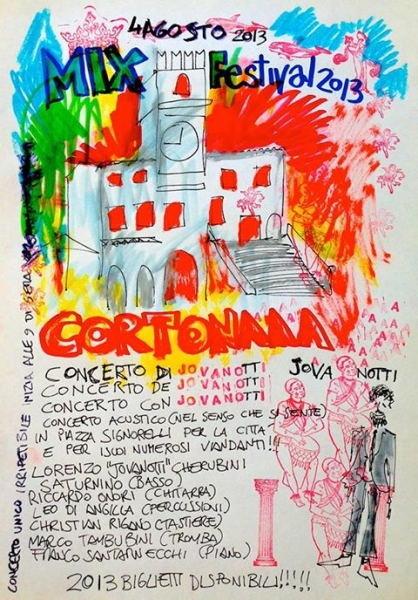 4 AGOSTO 2013
MIX Festival 2013
CORTONAAA
CONCERTO DI JOVANOTTI
CONCERTO DE JOVANOTTI
CONCERTO CON JOVANOTTI
JOVANOTTI
CONCERTO ACUSTICO (NEL SENSO CHE SI SENTE)
IN PIAZZA SIGNORELLI PER LA CITTA
E PER I SUOI NUMEROSI VIANDANTI!!!
LORENZO "JOVANOTTI" CHERUBINI
SATURNINO (BASSO)
RICCARDO ONORI (CHITARRA)
LEO DI ANGILLA (PERCUSSIONI)
CHRISTIAN RIGANO (TASTIERE)
MARCO TAMBUBINI (TROMBA)
FRANCO SANTARNECCHI (PIANO)
2013 BIGLIETTI DISPONIBILI!!!!!
CONCERTO UNICO IRRIPETIBILE INIZIA ALLE 9 DI SERA